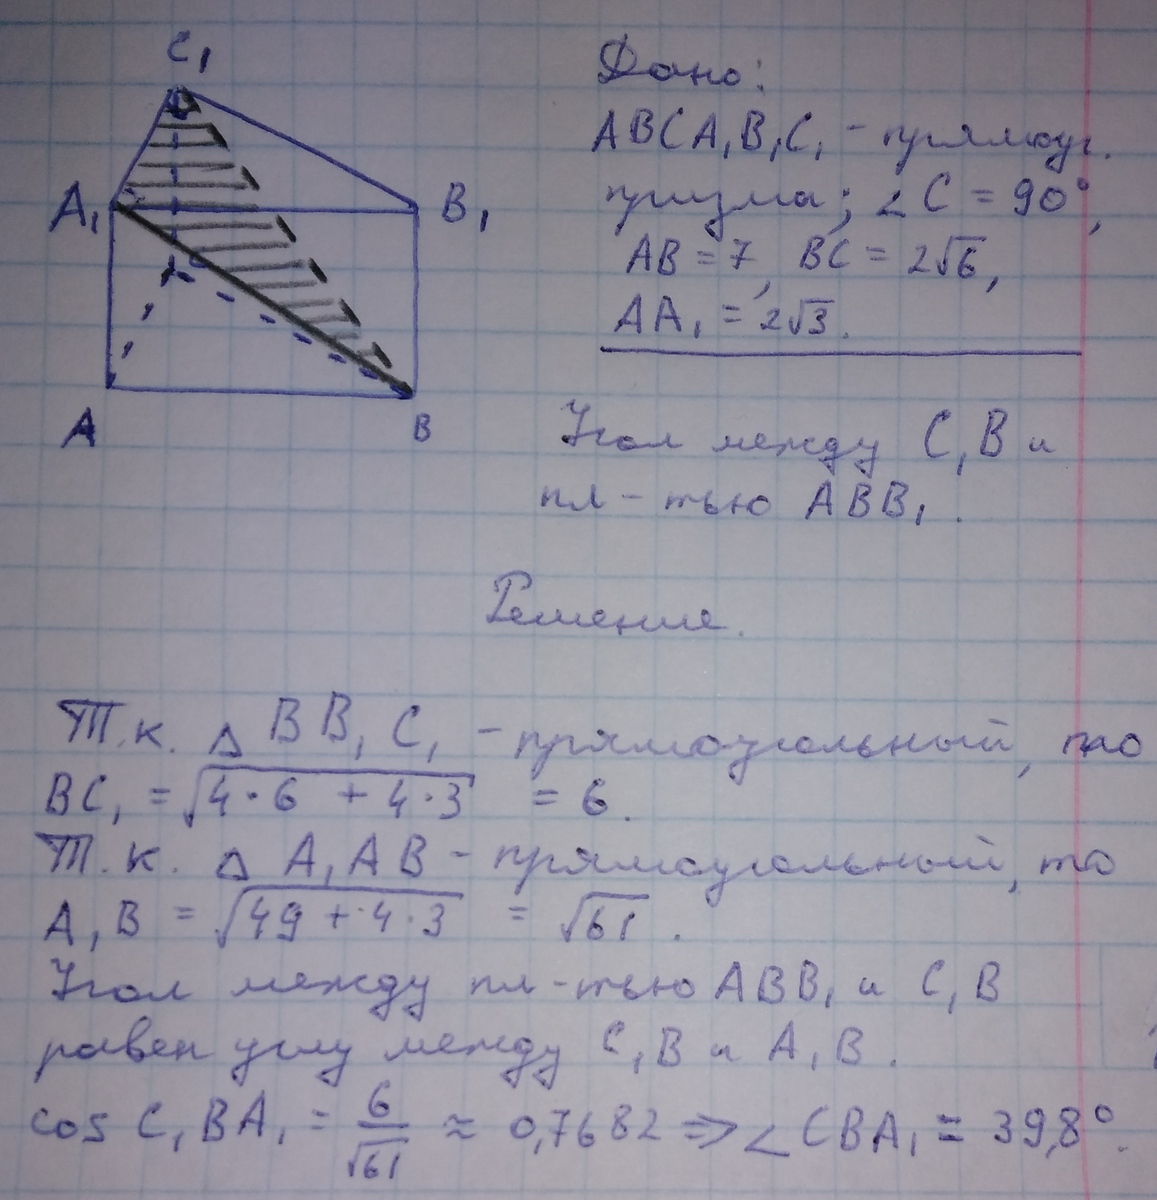 C₁
A₁
B₁
A
B
Дано:
ABCA₁B₁C₁ - прямоуг.
призма; ∠C = 90°,
AB = 7, BC = 2√6,
AA₁ = 2√3.
Угол между C₁B и
пл-тью ABB₁.
Решение.
Т.к. △BB₁C₁ - прямоугольный, то
BC₁ = √(4·6 + 4·3) = 6.
Т.к. △A₁AB - прямоугольный, то
A₁B = √(49 + 4·3) = √61.
Угол между пл-тью ABB₁ и C₁B
равен углу между C₁B и A₁B.
cos C₁BA₁ = 6/√61 ≈ 0,7682 ⇒ ∠CBA₁ = 39,8°.